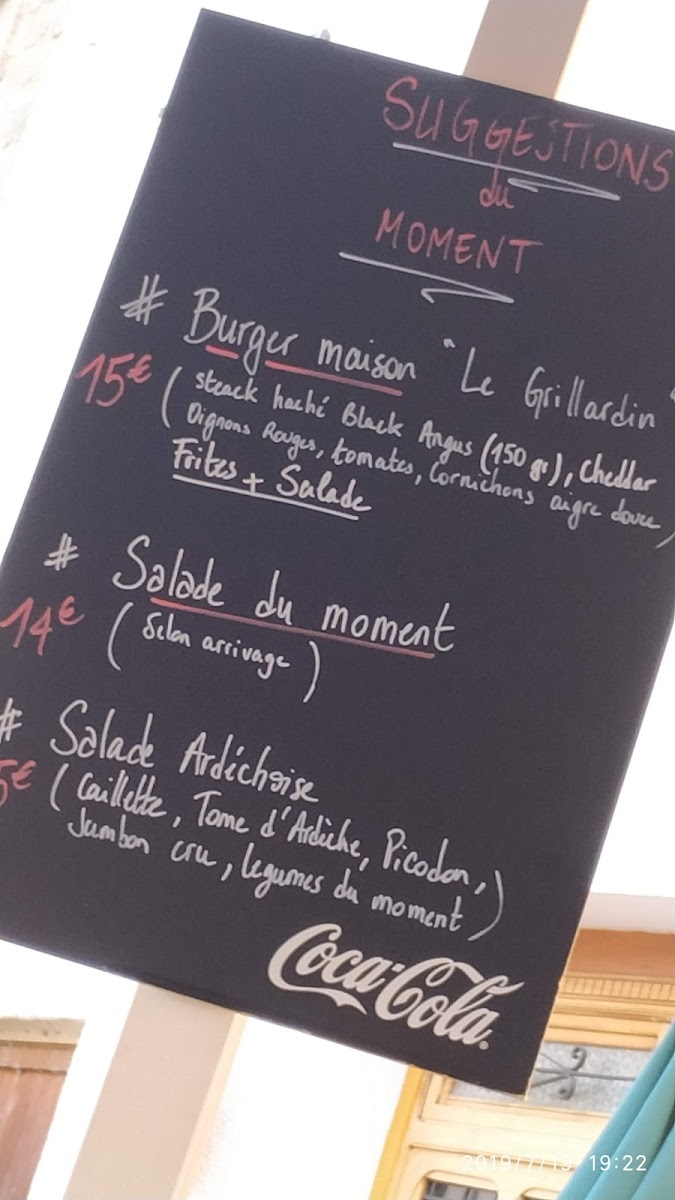 SUGGESTIONS
du
MOMENT
# Burger maison "Le Grillardin"
15€ (steack haché Black Angus (150 gr), Cheddar
Oignons Rouges, tomates, Cornichons aigre douce)
Frites + Salade
# Salade du moment
14€ (Selon arrivage)
# Salade Ardéchoise
5€ (Caillette, Tome d'Ardèche, Picodon,
Jambon cru, légumes du moment)
Coca-Cola
2019/7/19 19:22